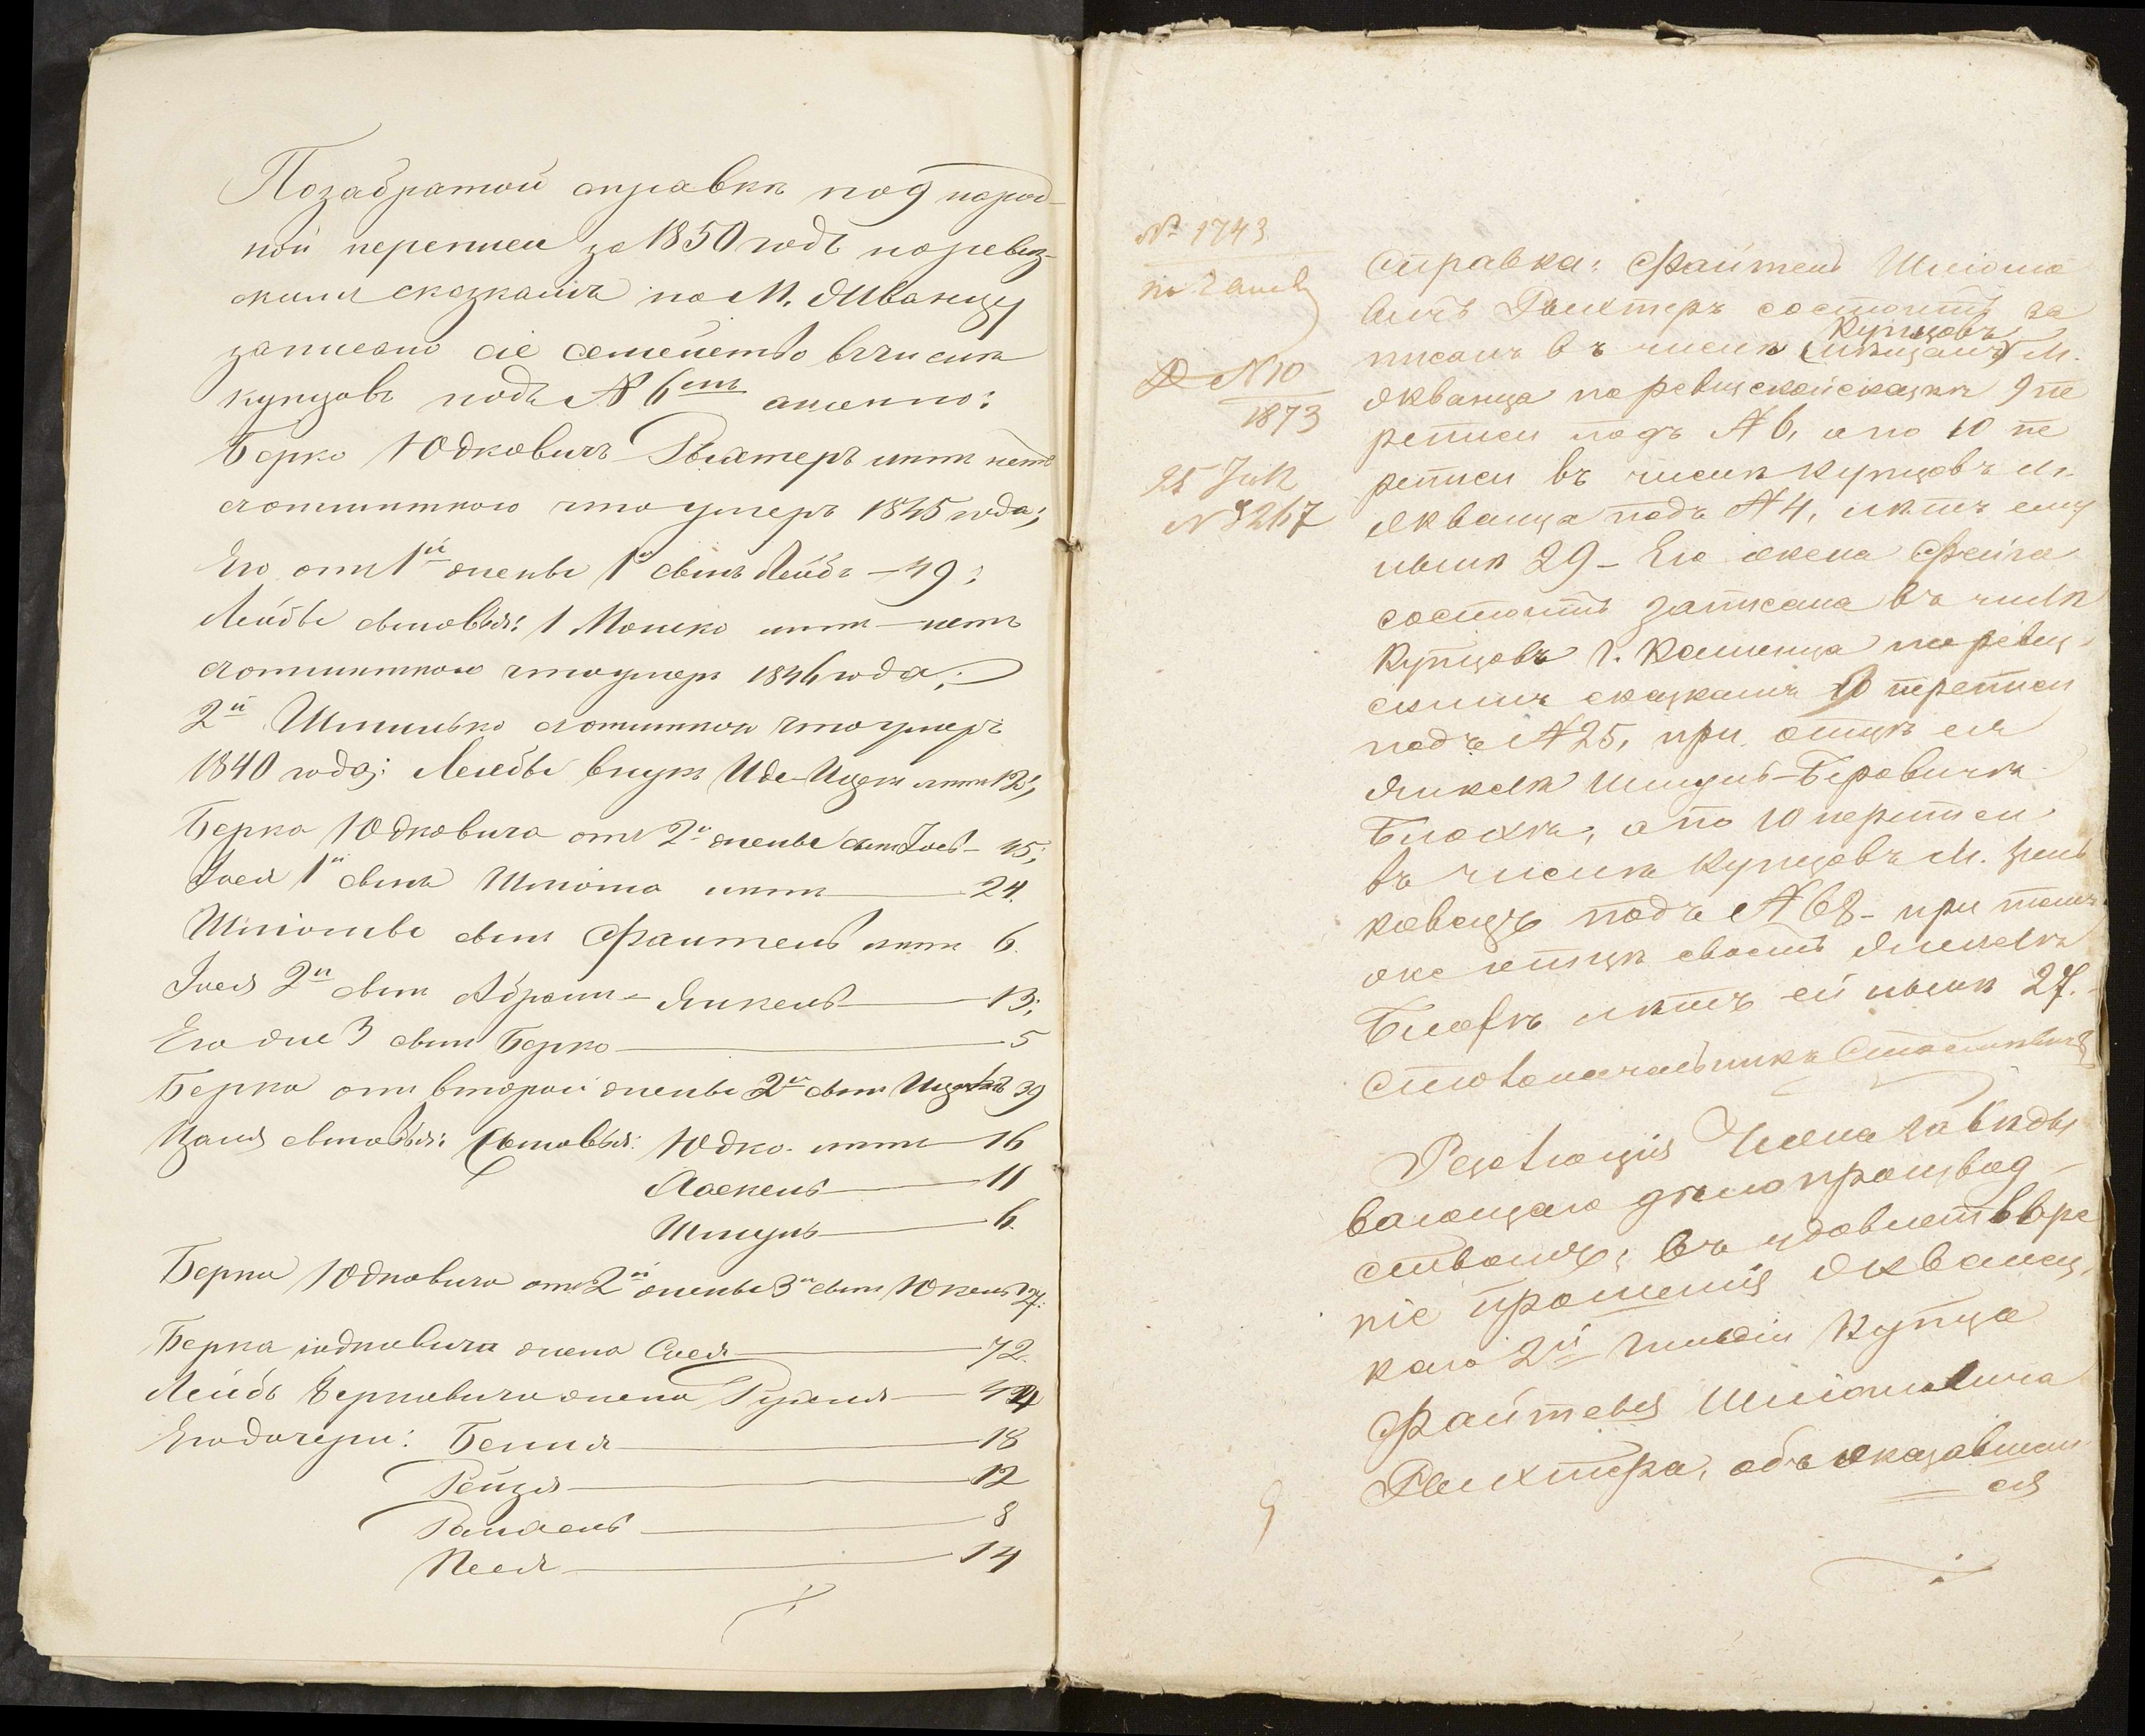 Позабратой справкѣ по 9 народ-
ной переписи за 1850 годъ поревиз-
скимъ сказкамъ по М. Жванцу
записано сіе семейство въчислѣ
купцовъ подъ № 6мъ аименно:
Берко Юдковичъ Рыхтеръ лѣтъ нетъ
сотмѣткою что умеръ 1845 года;
Его отъ 1й жены 1й сынъ Лейбъ — 49;
Лейбы сыновья: 1 Мошко лѣтъ — нетъ
сотмѣткою чтоумеръ 1846 года;
2й Шмилько сотмѣткою чтоумеръ
1840 года; Лейбы внукъ Иде-Ицекъ лѣтъ 12;
Берка Юдковича отъ 2й жены сынъ Іоель — 45;
Іоеля 1й сынъ Шліома лѣтъ — 24.
Шліомы сынъ Файтель лѣтъ 6.
Іоеля 2й сынъ Абрамъ-Янкель — 13;
Его же 3 сынъ Берко — 5
Берка отъ второй жены 2й сынъ 39
сыновья: Сыновья: Юдко лѣтъ — 16
— 11
Шмуль — 6.
Берка Юдковича отъ 2й жены 3й сынъ Юкель 27:
Берка юдковича жена Сося — 72.
Лейбы Берковича жена Рухля —
Егодочери: Бейля — 18
Рейзя — 12
Рахель — 8
Песя — 14
№ 1743
№ 10
1873
25 Іюл
№ 3267
Справка: Файтель Шліомо
вичъ Рыхтеръ состоитъ за
Купцовъ
писанъ въ числѣ (мѣщанъ) М.
Жванца поревизскойсказкѣ 9 пе
реписи подъ № 6, а по 10 пе
реписи въ числѣ купцовъ м.
Жванца подъ № 4, лѣтъ ему
нынѣ 29 - Его жена Фейга
состоитъ записана въ числѣ
Купцовъ г. Каменца по ревиз
скимъ сказкамъ 10 переписи
подъ № 25, при отцѣ ея
Янкелѣ Шмуль-Беровичѣ
Блохѣ, а по 10 переписи
въ числѣ купцовъ М.
подъ № 68 - при томъ
же отцѣ своемъ Янкелѣ
Блохѣ лѣтъ ей нынѣ 27.
Столоначальникъ
Резолюція Члена завѣды
вающаго дѣлопроизвод-
ствомъ: Въ удовлетворе
ніе прошенія Жванец,
каго 2й гильдіи Купца
Файтеля Шліомовича
Рыхтера, объ оказавшем
ся